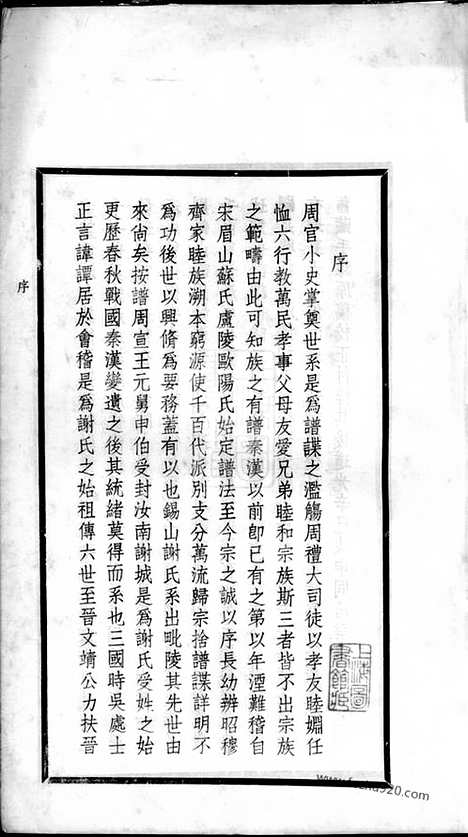 序
周官小史掌奠世系是爲譜諜之濫觴周禮大司徒以孝友睦婣任
恤六行教萬民孝事父母友愛兄弟睦和宗族斯三者皆不出宗族
之範疇由此可知族之有譜秦漢以前卽已有之第以年湮難稽自
宋眉山蘇氏盧陵歐陽氏始定譜法至今宗之誠以序長幼辨昭穆
齊家睦族溯本窮源使千百代派別支分萬流歸宗捨譜諜詳明不
爲功後世以興脩爲要務蓋有以也錫山謝氏系出毗陵其先世由
來尙矣按譜周宣王元舅申伯受封汝南謝城是爲謝氏受姓之始
更歷春秋戰國秦漢變遺之後其統緒莫得而系也三國時吳處士
正言諱譚居於會稽是爲謝氏之始祖傳六世至晉文靖公力扶晉
序
上海圖書館藏